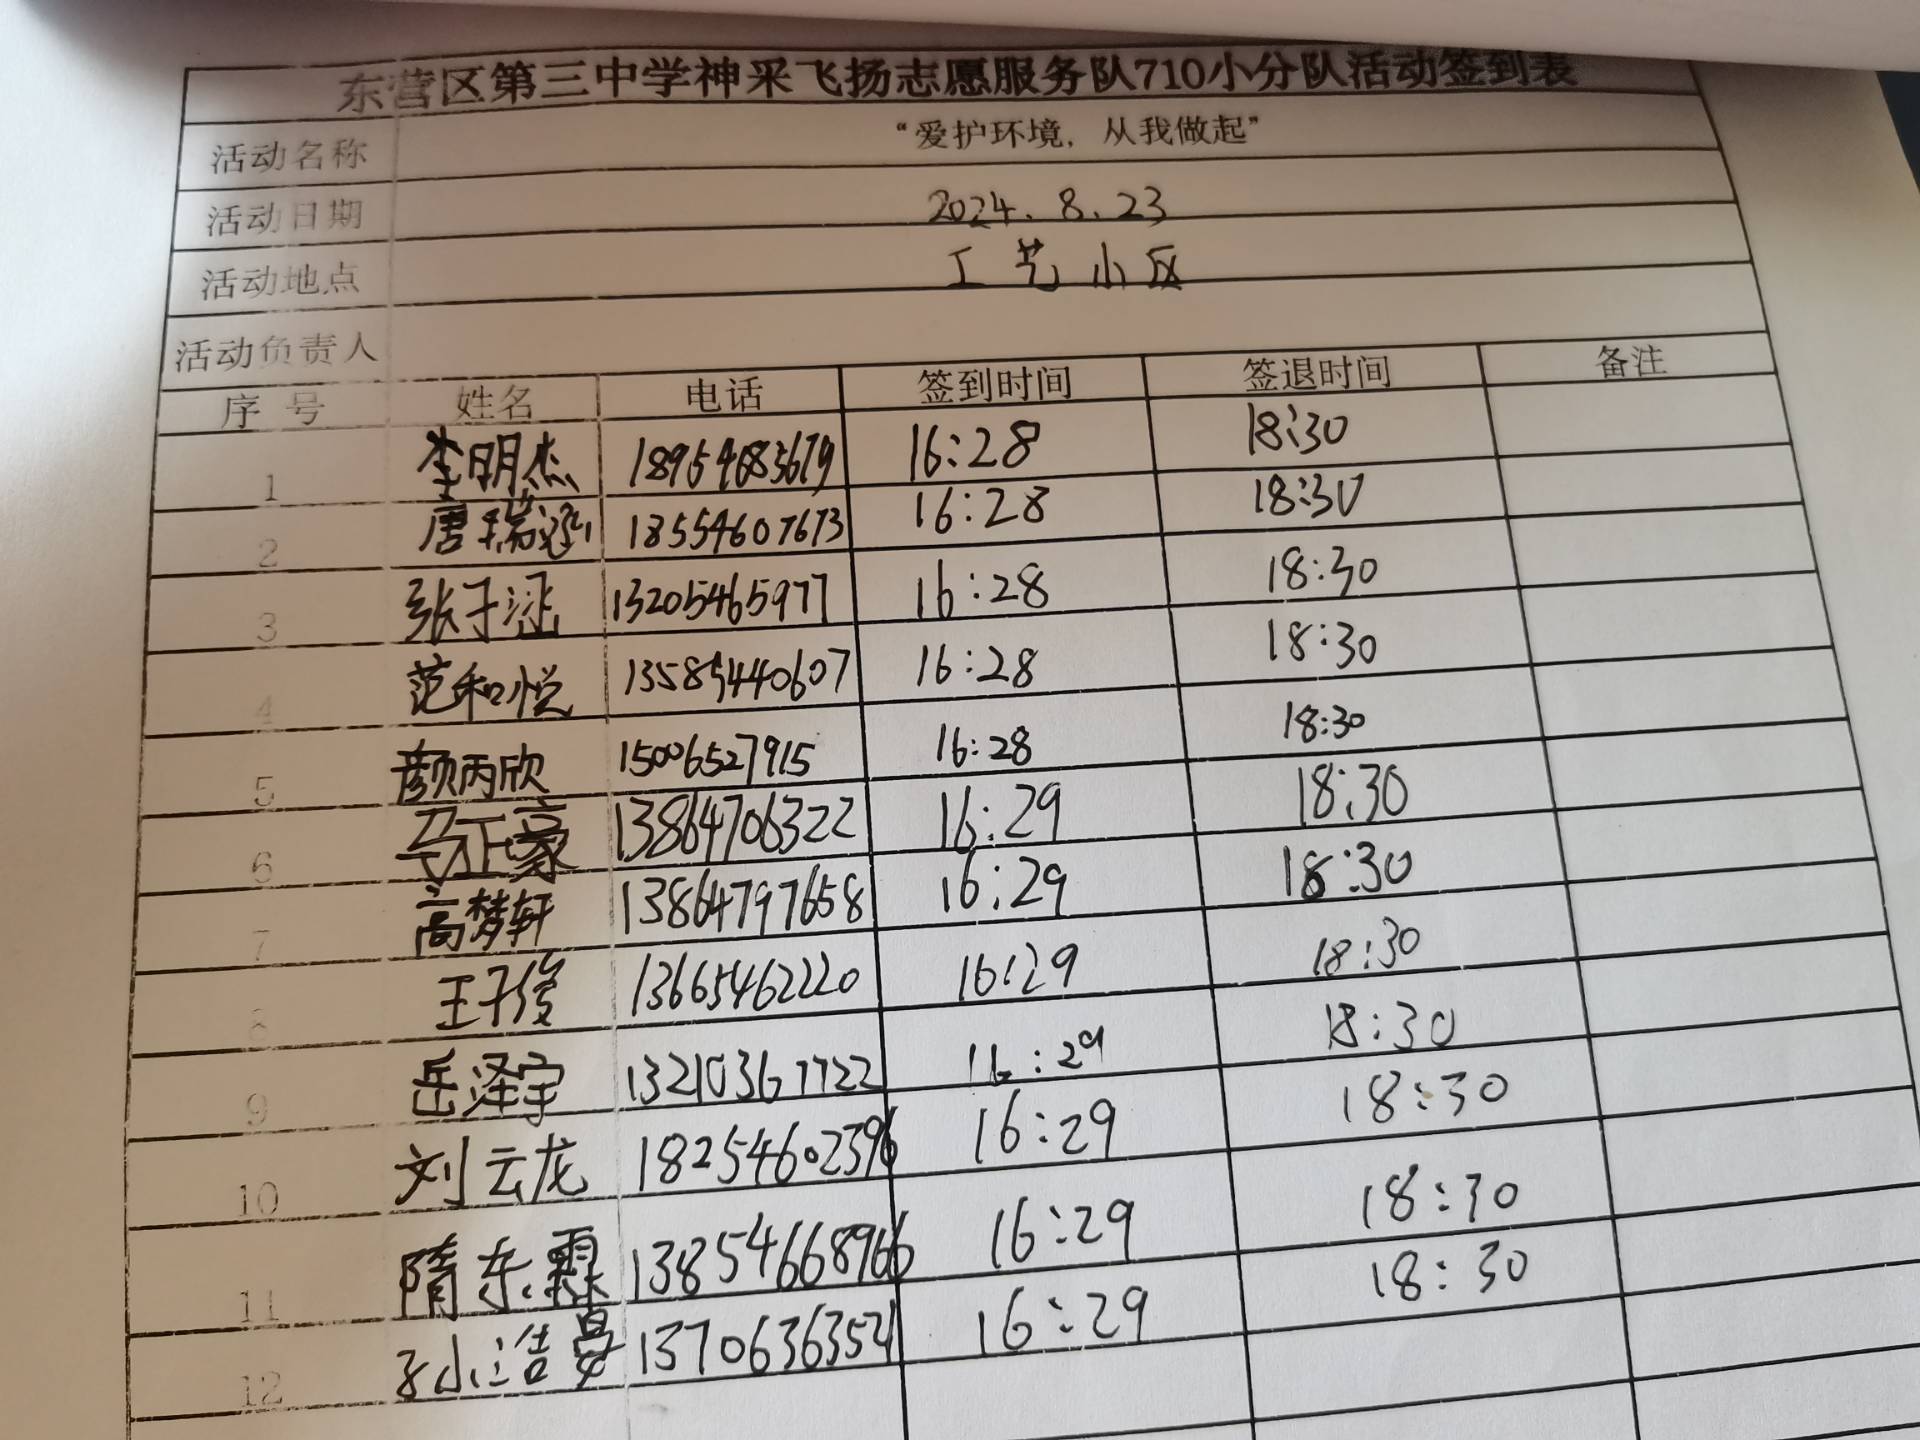 东营区第三中学神采飞扬志愿服务队710小分队活动签到表
活动名称 “爱护环境，从我做起”
活动日期 2024.8.23
活动地点 工艺小区
活动负责人
序号 姓名 电话 签到时间 签退时间 备注
1 李明杰 18954683679 16:28 18:30
2 唐瑞 18554607673 16:28 18:30
3 张子涵 13205465977 16:28 18:30
4 范和悦 13585440607 16:28 18:30
5 颜丙欣 15006527915 16:28 18:30
6 马正豪 13864706322 16:29 18:30
7 高梦轩 13864797658 16:29 18:30
8 王子俊 13665462220 16:29 18:30
9 岳泽宇 13210367722 16:29 18:30
10 刘云龙 18254602396 16:29 18:30
11 隋东霖 13854668966 16:29 18:30
12 孙浩 13706363521 16:29 18:30